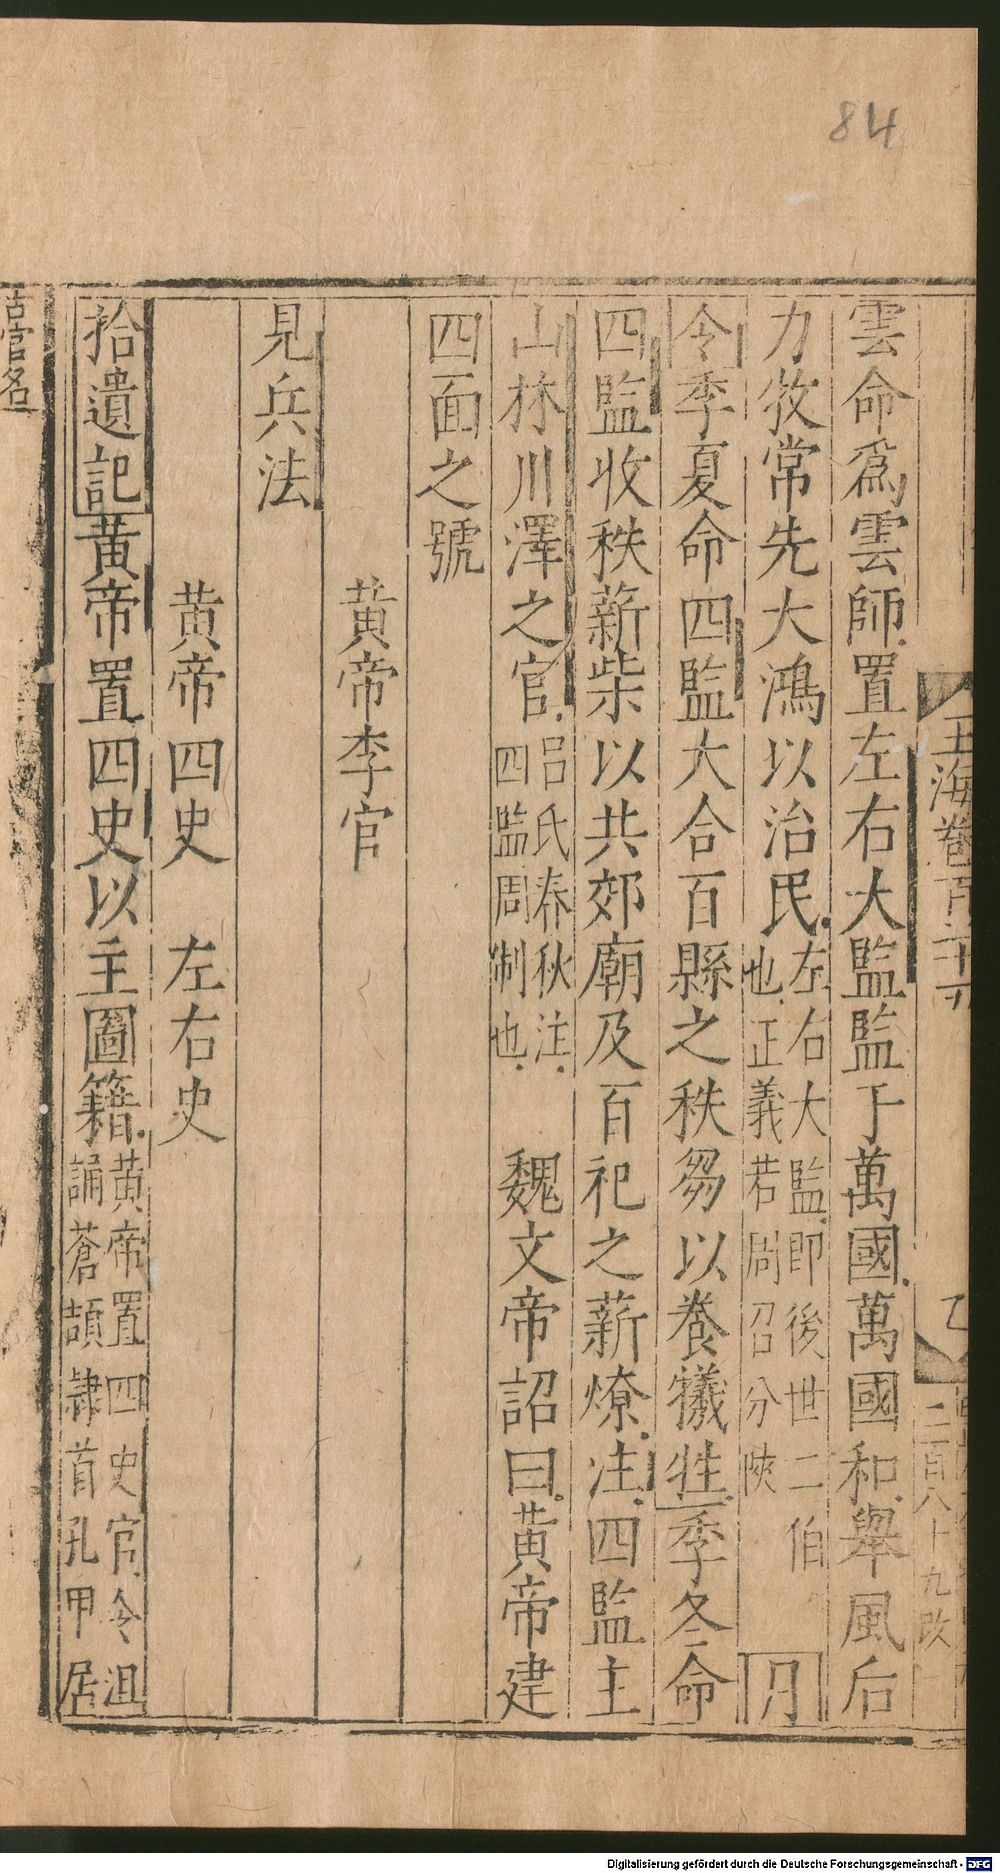 84
雲命爲雲師置左右大監監于萬國萬國和舉風后
力牧常先大鴻以治民左右大監即後世二伯
也正義若周召分陝 月
令季夏命四監大合百縣之秩芻以養犧牲季冬命
四監收秩薪柴以共郊廟及百祀之薪燎注四監主
山林川澤之官呂氏春秋注
四監周制也 魏文帝詔曰黃帝建
四面之號
黃帝李官
見兵法
黃帝四史 左右史
拾遺記黃帝置四史以主圖籍黃帝置四史官令沮
誦蒼頡隷首孔甲居
玉海卷百二十
二百八十九改
官名
Digitalisierung gefördert durch die Deutsche Forschungsgemeinschaft - DFG